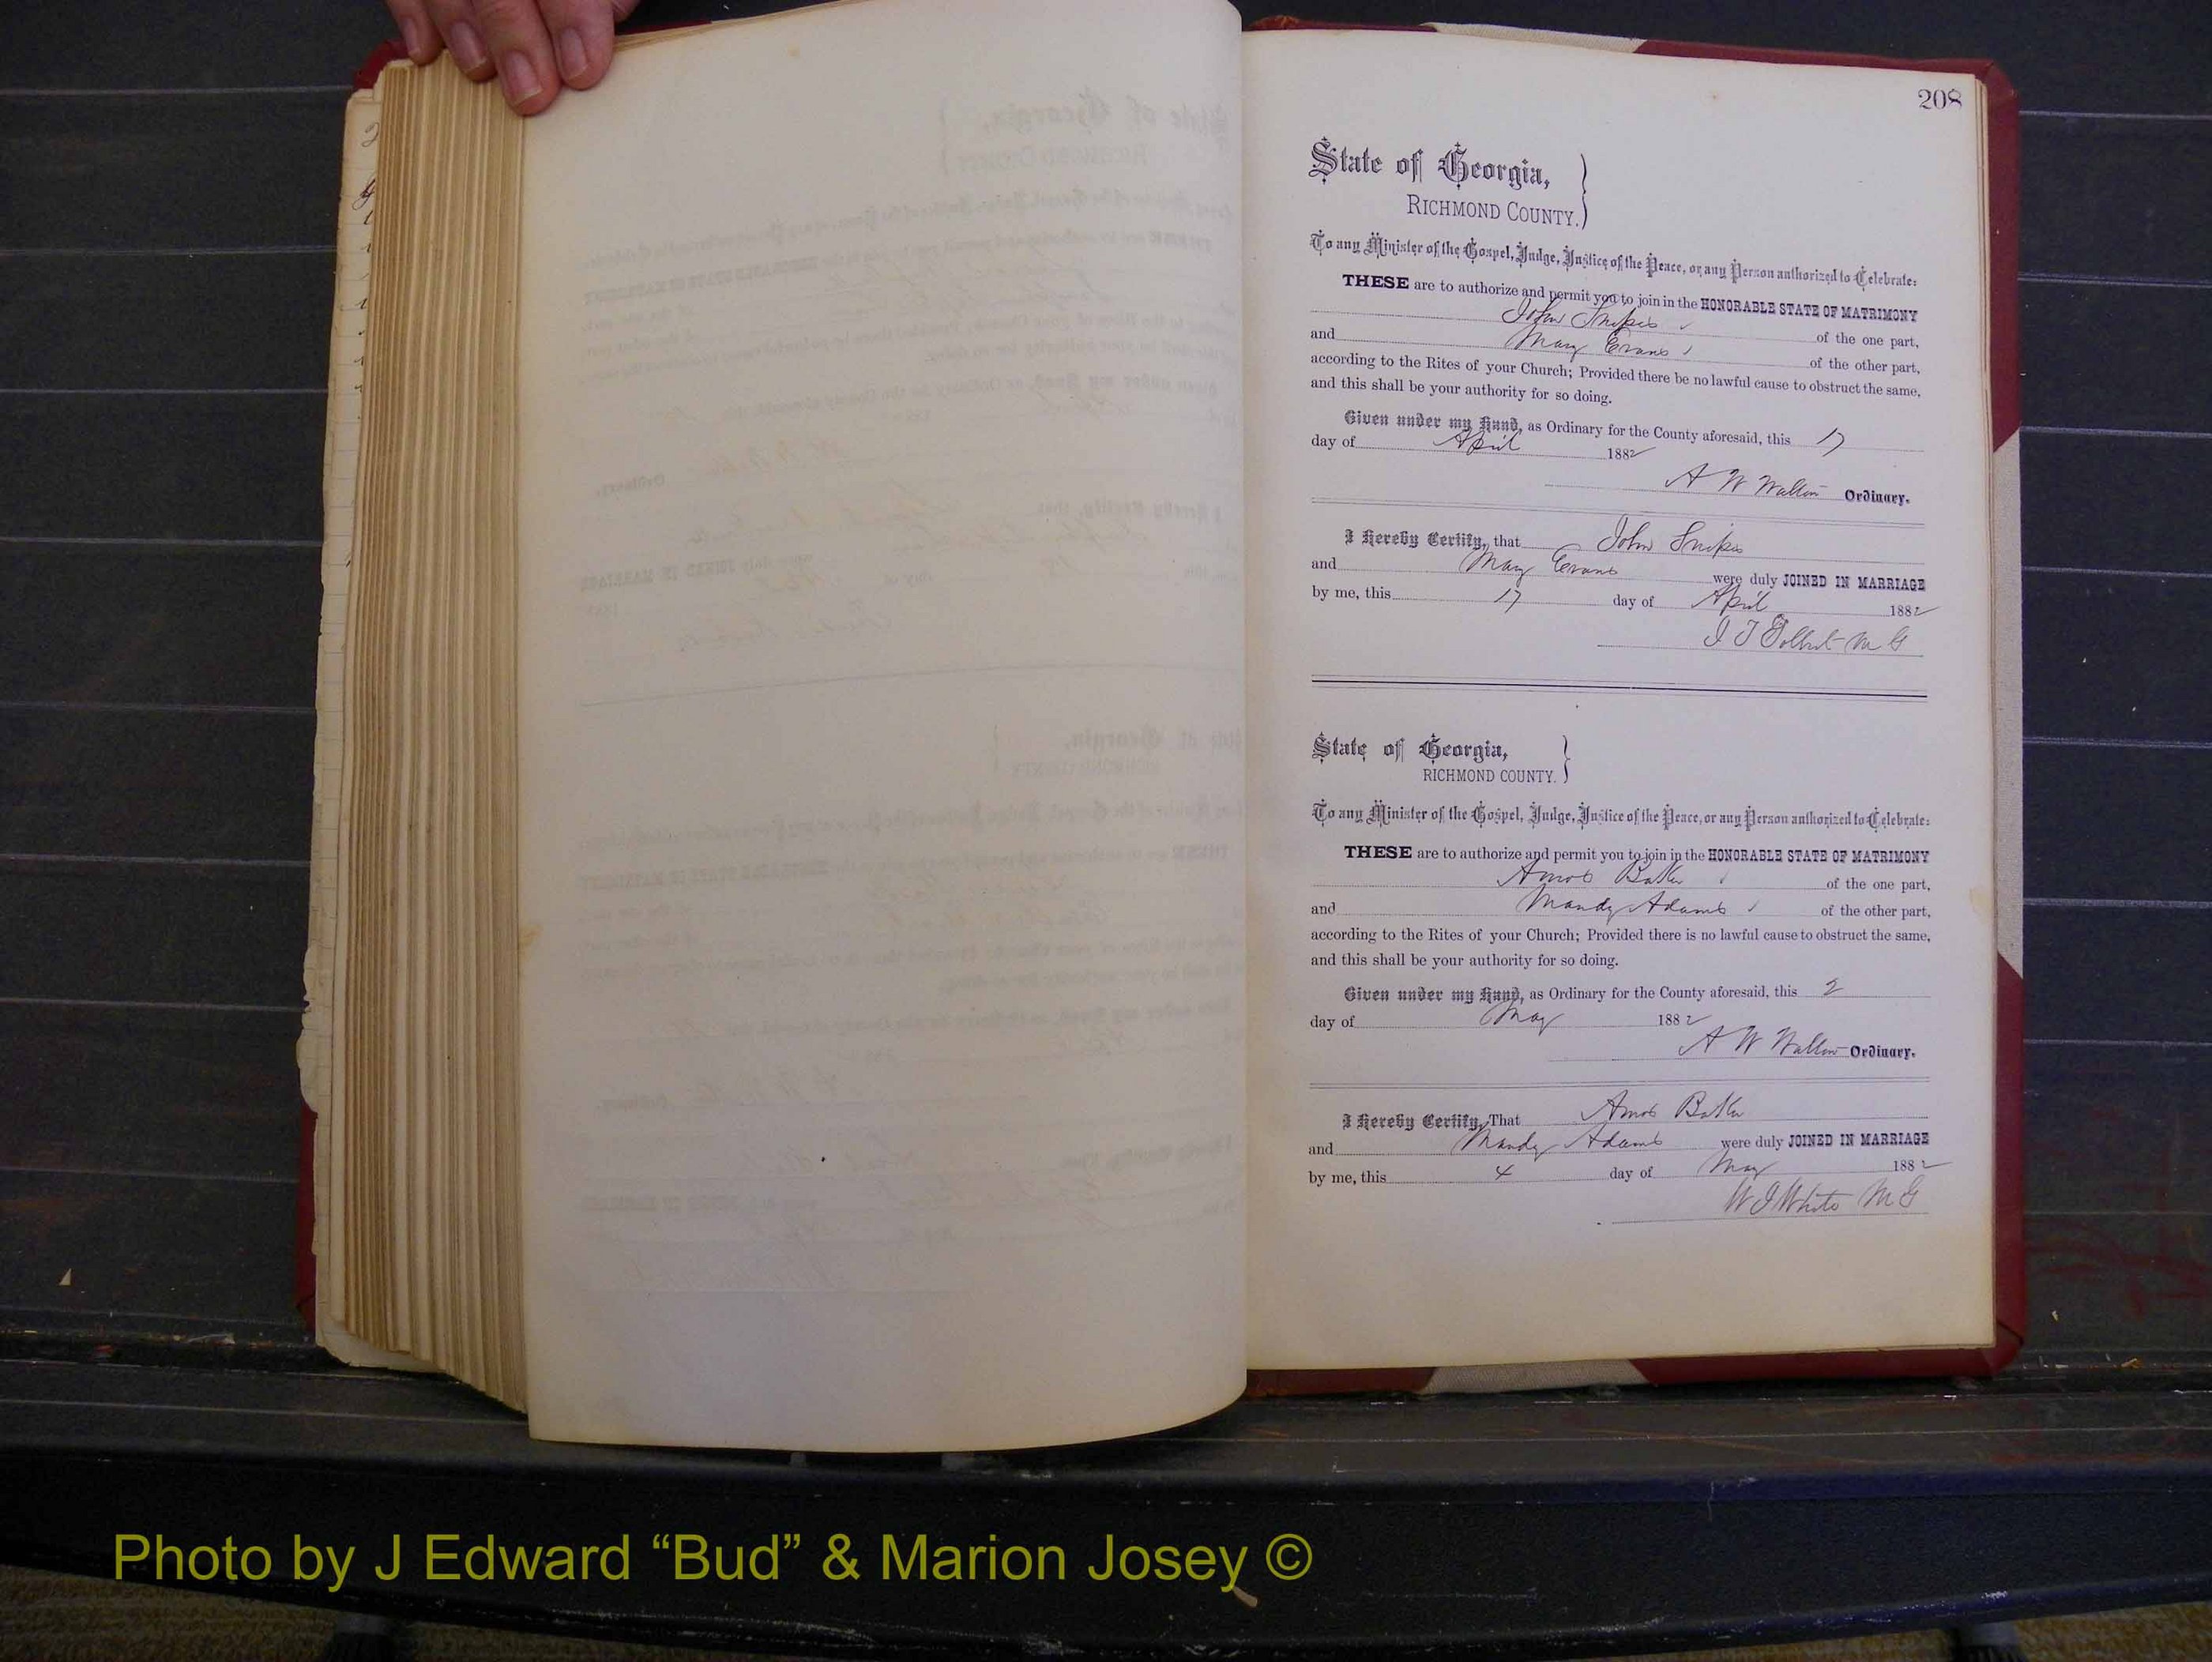 208
State of Georgia,
RICHMOND COUNTY.
To any Minister of the Gospel, Judge, Justice of the Peace, or any Person authorized to Celebrate:
THESE are to authorize and permit you to join in the HONORABLE STATE OF MATRIMONY
John Snipes of the one part,
and Mary Evans of the other part,
according to the Rites of your Church; Provided there be no lawful cause to obstruct the same,
and this shall be your authority for so doing.
Given under my Hand, as Ordinary for the County aforesaid, this 17
day of April 1882
A W Walton Ordinary.
I Hereby Certify, that John Snipes
and Mary Evans were duly JOINED IN MARRIAGE
by me, this 17 day of April 1882
M G
State of Georgia,
RICHMOND COUNTY.
To any Minister of the Gospel, Judge, Justice of the Peace, or any Person authorized to Celebrate:
THESE are to authorize and permit you to join in the HONORABLE STATE OF MATRIMONY
Amos Butler of the one part,
and Mandy Adams of the other part,
according to the Rites of your Church; Provided there is no lawful cause to obstruct the same,
and this shall be your authority for so doing.
Given under my Hand, as Ordinary for the County aforesaid, this 2
day of May 1882
A W Walton Ordinary.
I Hereby Certify, That Amos Butler
and Mandy Adams were duly JOINED IN MARRIAGE
by me, this 4 day of May 1882
W J White M G
Photo by J Edward “Bud” & Marion Josey ©